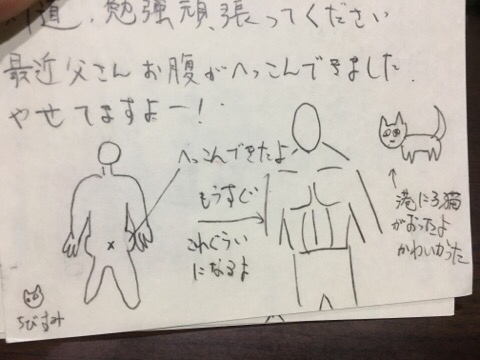 道、勉強頑張ってください
最近父さんお腹がへっこんできました。
やせてますよー!
へっこんできたよ
もうすぐ
これぐらい
になるよ
港に子猫
がおったよ
かわいかった
ちびすみ